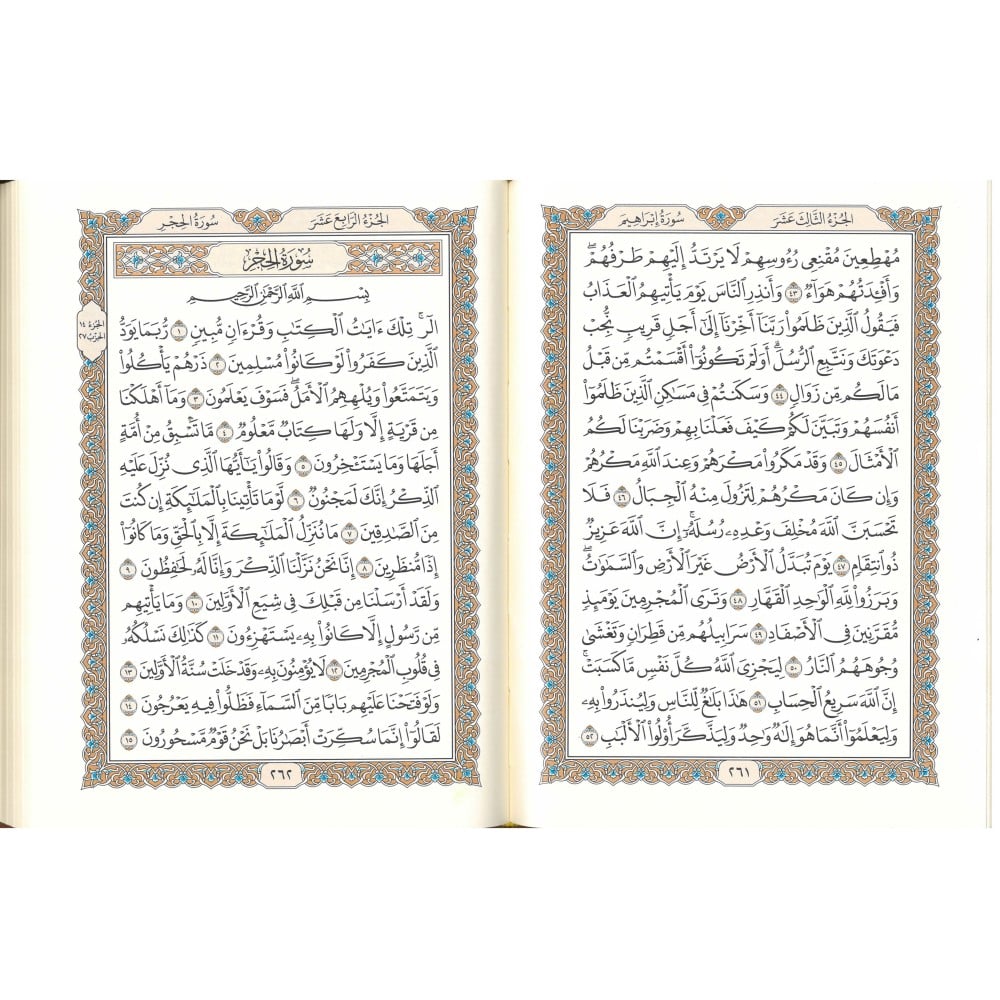 الجُزْءُ الثَّالِثَ عَشَرَ
سُورَةُ إِبْرَاهِيمَ
مُهْطِعِينَ مُقْنِعِي رُءُوسِهِمْ لَا يَرْتَدُّ إِلَيْهِمْ طَرْفُهُمْۖ
وَأَفْـِٔدَتُهُمْ هَوَآءٌ ٤٣ وَأَنذِرِ ٱلنَّاسَ يَوْمَ يَأْتِيهِمُ ٱلْعَذَابُ
فَيَقُولُ ٱلَّذِينَ ظَلَمُوا۟ رَبَّنَآ أَخِّرْنَآ إِلَىٰٓ أَجَلٍ قَرِيبٍ نُّجِبْ
دَعْوَتَكَ وَنَتَّبِعِ ٱلرُّسُلَۗ أَوَلَمْ تَكُونُوٓا۟ أَقْسَمْتُم مِّن قَبْلُ
مَا لَكُم مِّن زَوَالٍ ٤٤ وَسَكَنتُمْ فِي مَسَٰكِنِ ٱلَّذِينَ ظَلَمُوٓا۟
أَنفُسَهُمْ وَتَبَيَّنَ لَكُمْ كَيْفَ فَعَلْنَا بِهِمْ وَضَرَبْنَا لَكُمُ
ٱلْأَمْثَالَ ٤٥ وَقَدْ مَكَرُوا۟ مَكْرَهُمْ وَعِندَ ٱللَّهِ مَكْرُهُمْ
وَإِن كَانَ مَكْرُهُمْ لِتَزُولَ مِنْهُ ٱلْجِبَالُ ٤٦ فَلَا
تَحْسَبَنَّ ٱللَّهَ مُخْلِفَ وَعْدِهِۦ رُسُلَهُۥٓۚ إِنَّ ٱللَّهَ عَزِيزٌ
ذُو ٱنتِقَامٍ ٤٧ يَوْمَ تُبَدَّلُ ٱلْأَرْضُ غَيْرَ ٱلْأَرْضِ وَٱلسَّمَٰوَٰتُۖ
وَبَرَزُوا۟ لِلَّهِ ٱلْوَٰحِدِ ٱلْقَهَّارِ ٤٨ وَتَرَى ٱلْمُجْرِمِينَ يَوْمَئِذٍ
مُّقَرَّنِينَ فِي ٱلْأَصْفَادِ ٤٩ سَرَابِيلُهُم مِّن قَطِرَانٍ وَتَغْشَىٰ
وُجُوهَهُمُ ٱلنَّارُ ٥٠ لِيَجْزِيَ ٱللَّهُ كُلَّ نَفْسٍ مَّا كَسَبَتْۚ
إِنَّ ٱللَّهَ سَرِيعُ ٱلْحِسَابِ ٥١ هَٰذَا بَلَٰغٌ لِّلنَّاسِ وَلِيُنذَرُوا۟ بِهِۦ
وَلِيَعْلَمُوٓا۟ أَنَّمَا هُوَ إِلَٰهٌ وَٰحِدٌ وَلِيَذَّكَّرَ أُو۟لُوا۟ ٱلْأَلْبَٰبِ ٥٢
٢٦١
الجُزْءُ الرَّابِعَ عَشَرَ
سُورَةُ الحِجْرِ
سُورَةُ الحِجْرِ
بِسْمِ ٱللَّهِ ٱلرَّحْمَٰنِ ٱلرَّحِيمِ
الٓرۚ تِلْكَ ءَايَٰتُ ٱلْكِتَٰبِ وَقُرْءَانٍ مُّبِينٍ ١ رُّبَمَا يَوَدُّ
ٱلَّذِينَ كَفَرُوا۟ لَوْ كَانُوا۟ مُسْلِمِينَ ٢ ذَرْهُمْ يَأْكُلُوا۟
وَيَتَمَتَّعُوا۟ وَيُلْهِهِمُ ٱلْأَمَلُۖ فَسَوْفَ يَعْلَمُونَ ٣ وَمَآ أَهْلَكْنَا
مِن قَرْيَةٍ إِلَّا وَلَهَا كِتَابٌ مَّعْلُومٌ ٤ مَّا تَسْبِقُ مِنْ أُمَّةٍ
أَجَلَهَا وَمَا يَسْتَـْٔخِرُونَ ٥ وَقَالُوا۟ يَٰٓأَيُّهَا ٱلَّذِي نُزِّلَ عَلَيْهِ
ٱلذِّكْرُ إِنَّكَ لَمَجْنُونٌ ٦ لَّوْ مَا تَأْتِينَا بِٱلْمَلَٰٓئِكَةِ إِن كُنتَ
مِنَ ٱلصَّٰدِقِينَ ٧ مَا نُنَزِّلُ ٱلْمَلَٰٓئِكَةَ إِلَّا بِٱلْحَقِّ وَمَا كَانُوٓا۟
إِذًا مُّنظَرِينَ ٨ إِنَّا نَحْنُ نَزَّلْنَا ٱلذِّكْرَ وَإِنَّا لَهُۥ لَحَٰفِظُونَ ٩
وَلَقَدْ أَرْسَلْنَا مِن قَبْلِكَ فِي شِيَعِ ٱلْأَوَّلِينَ ١٠ وَمَا يَأْتِيهِم
مِّن رَّسُولٍ إِلَّا كَانُوا۟ بِهِۦ يَسْتَهْزِءُونَ ١١ كَذَٰلِكَ نَسْلُكُهُۥ
فِي قُلُوبِ ٱلْمُجْرِمِينَ ١٢ لَا يُؤْمِنُونَ بِهِۦ وَقَدْ خَلَتْ سُنَّةُ ٱلْأَوَّلِينَ ١٣
وَلَوْ فَتَحْنَا عَلَيْهِم بَابًا مِّنَ ٱلسَّمَآءِ فَظَلُّوا۟ فِيهِ يَعْرُجُونَ ١٤
لَقَالُوٓا۟ إِنَّمَا سُكِّرَتْ أَبْصَٰرُنَا بَلْ نَحْنُ قَوْمٌ مَّسْحُورُونَ ١٥
الجُزْءُ ١٤
الحِزْبُ ٢٧
٢٦٢